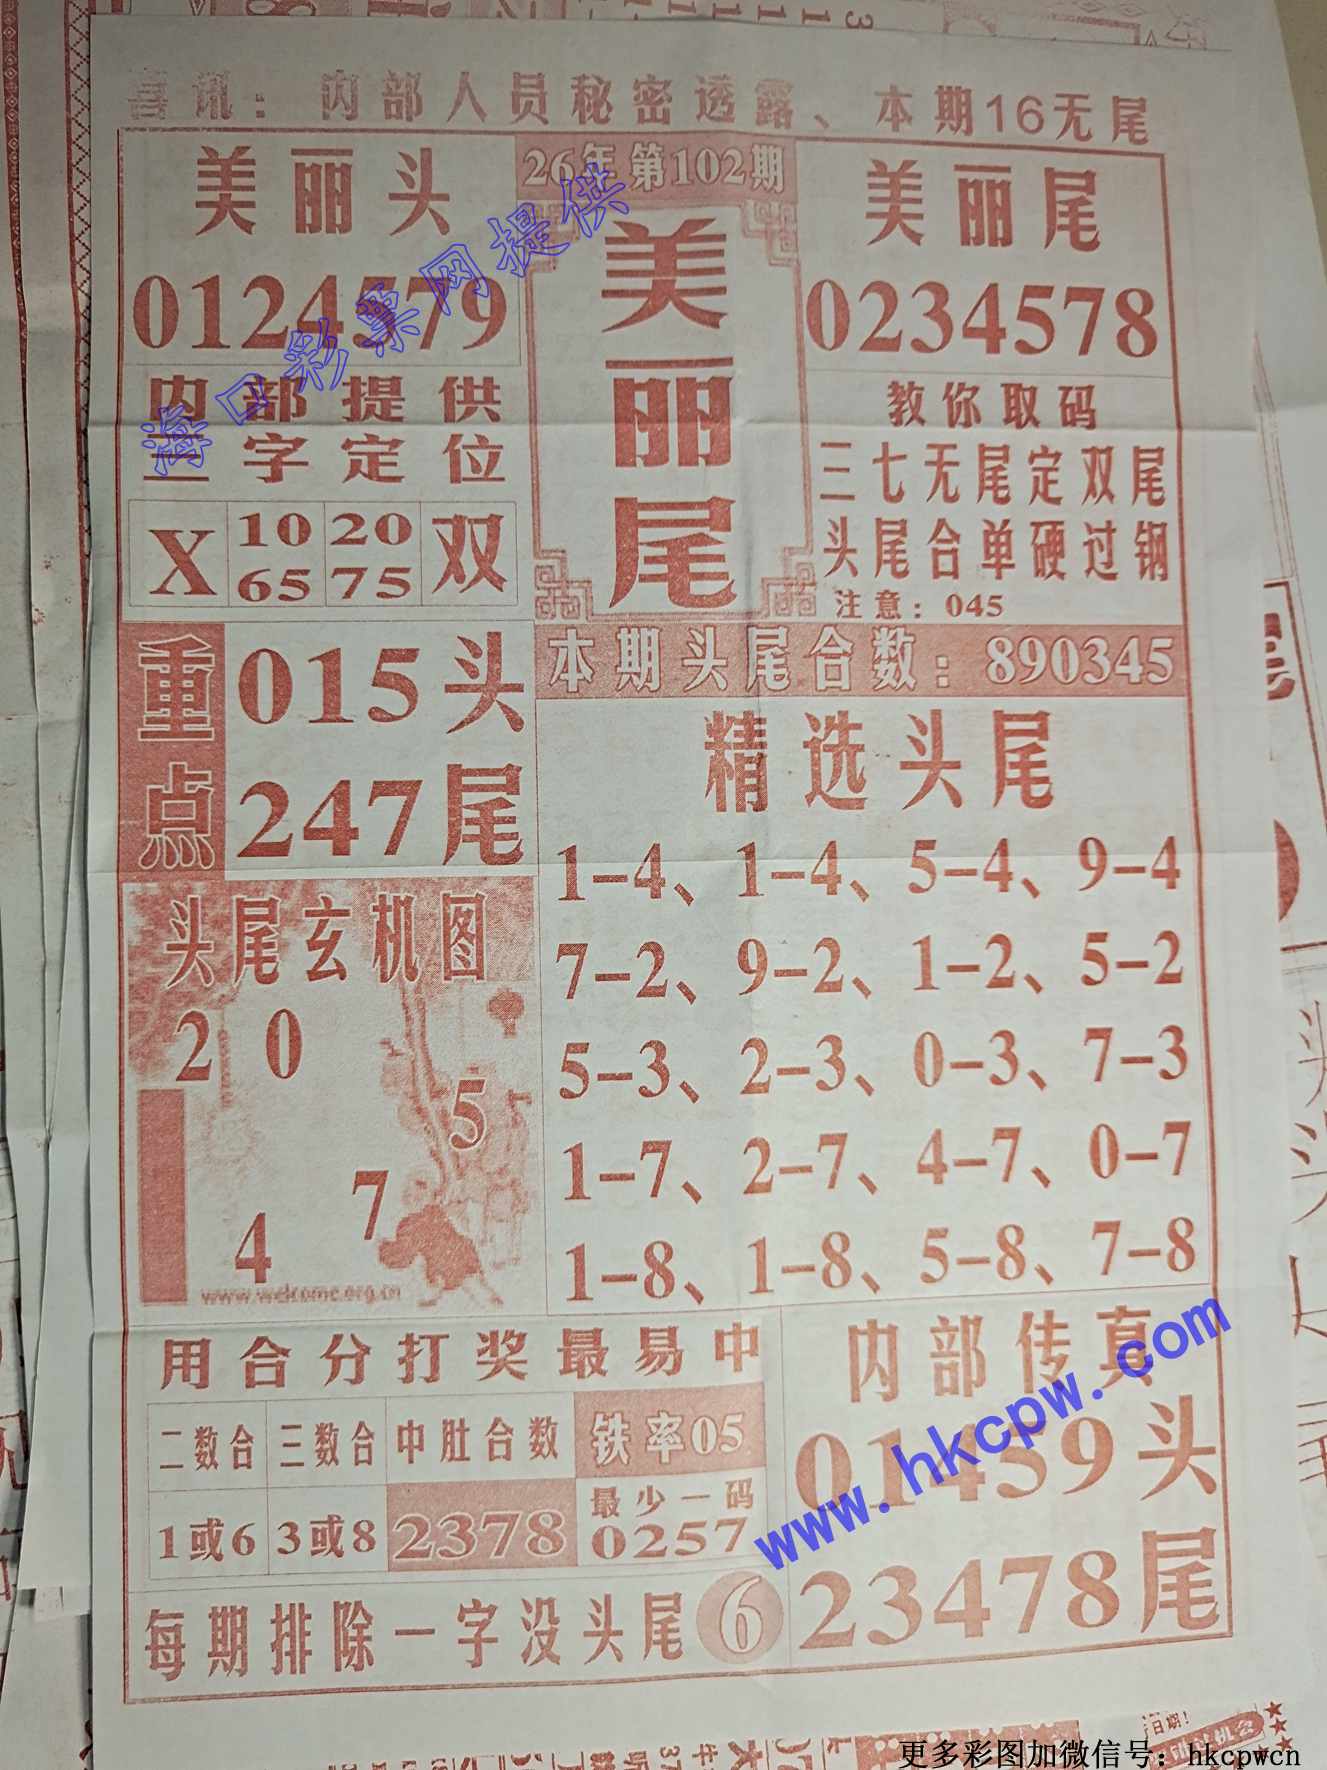 喜讯：内部人员秘密透露、本期16无尾
美丽头
0124579
26年第102期
美丽尾
美丽尾
0234578
内部提供
二字定位
X 10 65 20 75 双
教你取码
三七无尾定双尾
头尾合单硬过钢
注意：045
重点
015头
247尾
本期头尾合数：890345
精选头尾
1-4、1-4、5-4、9-4
7-2、9-2、1-2、5-2
5-3、2-3、0-3、7-3
1-7、2-7、4-7、0-7
1-8、1-8、5-8、7-8
头尾玄机图
2 0
5
7
4
www.welcome.org.cn
用合分打奖最易中
二数合 三数合 中肚合数 铁率05
1或6 3或8 2378 最少一码
0257
每期排除一字没头尾 6
内部传真
01459头
23478尾
海口彩票网提供
www.hkcpw.com
更多彩图加微信号：hkcpwcn